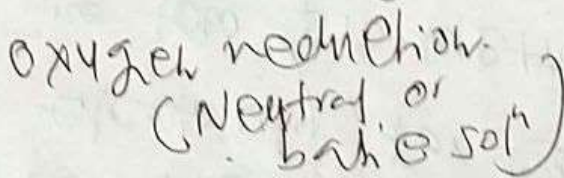 oxygen reduction.
(Neutral or
basic solⁿ)